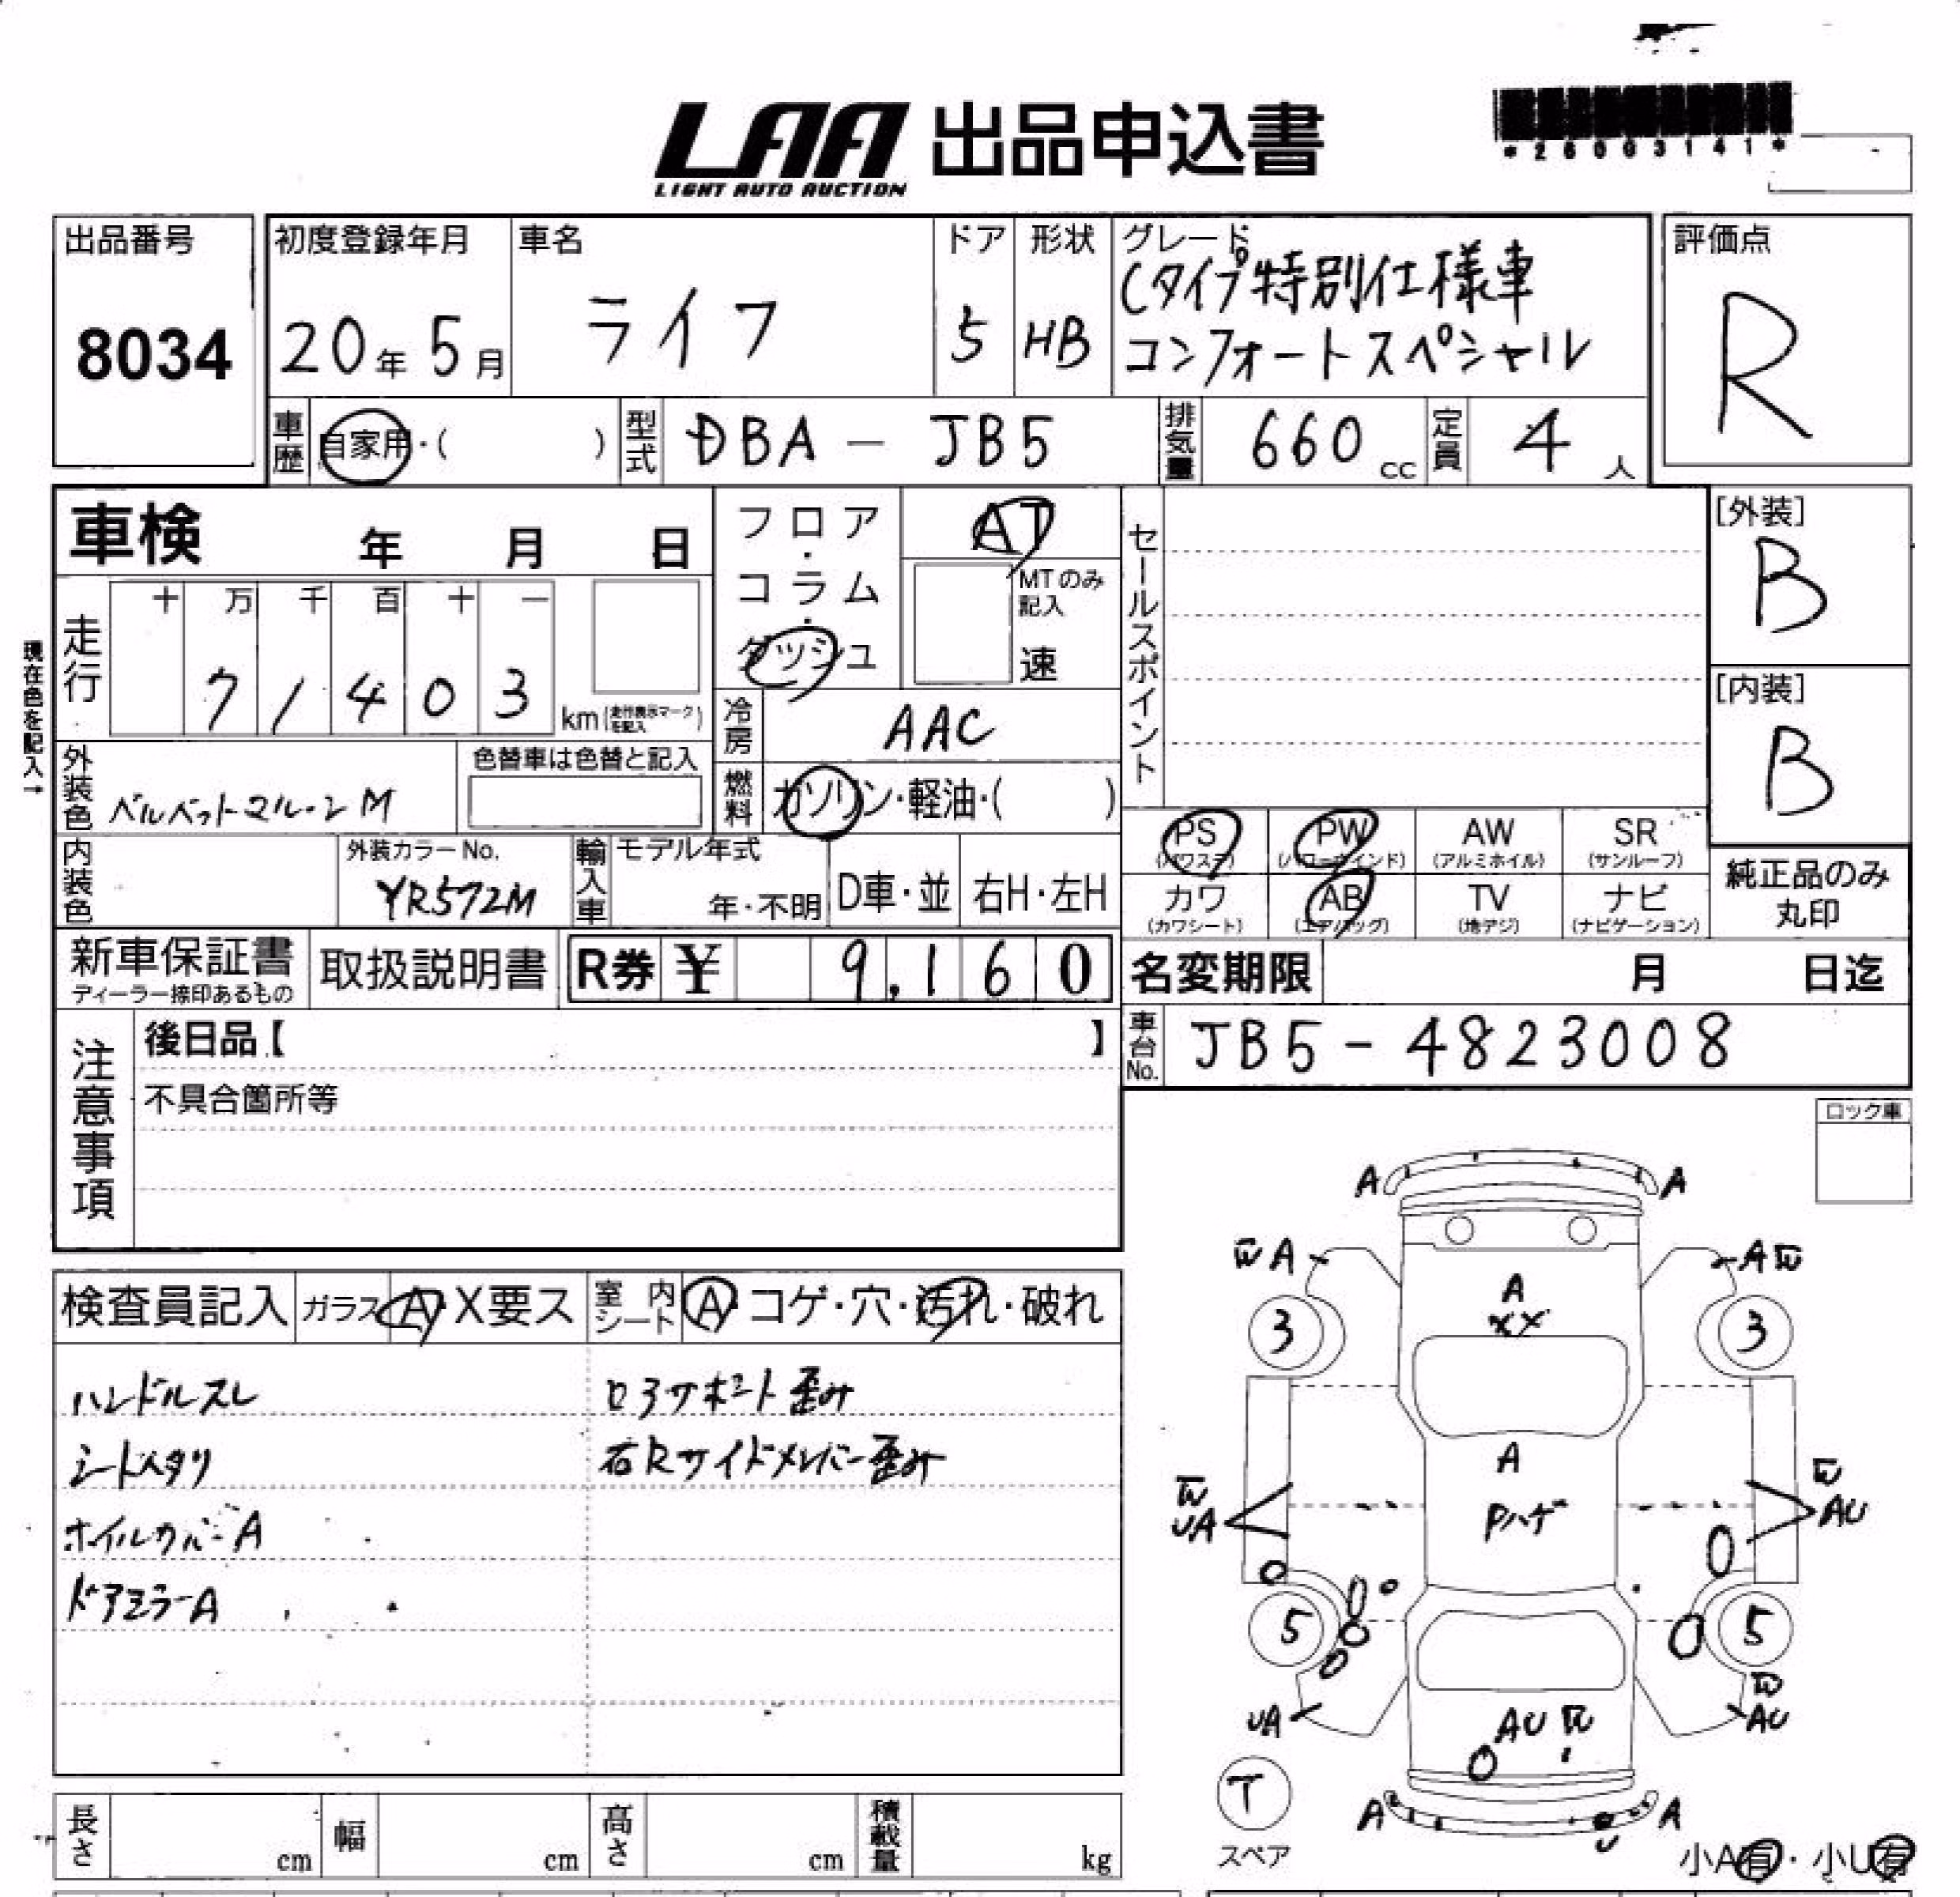 LAA 出品申込書
LIGHT AUTO AUCTION
*26003141*
出品番号
8034
初度登録年月
20年5月
車名
ライフ
ドア
5
形状
HB
グレード
Cタイプ特別仕様車
コンフォートスペシャル
評価点
R
車歴
自家用・( )
型式
DBA - JB5
排気量
660 cc
定員
4人
車検 年 月 日
フロア・コラム・ダッシュ
AT
MTのみ記入
速
セールスポイント
[外装]
B
[内装]
B
現在色を記入→
走行
十万千百十一
71403
km(走行表示マークを記入)
冷房
AAC
外装色
ベルベットマルーンM
色替車は色替と記入
燃料
ガソリン・軽油・( )
PS
(パワステ)
PW
(パワーウインド)
AW
(アルミホイル)
SR
(サンルーフ)
内装色
外装カラーNo.
YR572M
輸入車
モデル年式
年・不明
D車・並
右H・左H
カワ
(カワシート)
AB
(エアバッグ)
TV
(地デジ)
ナビ
(ナビゲーション)
純正品のみ
丸印
新車保証書
ディーラー捺印あるもの
取扱説明書
R券 ¥ 9,160
名変期限 月 日迄
注意事項
後日品【 】
車台No.
JB5-4823008
不具合箇所等
ロック車
検査員記入
ガラス A・X要ス
室内シート
A・コゲ・穴・汚れ・破れ
ハンドルスレ
ロアサポート歪み
シートヘタリ
右Rサイドメンバー歪み
ホイルカバーA
ドアミラーA
A A
W A A W
A
XX
3 3
A
W W
UA AU
Pハゲ
5 5
W
UA AU W AU
T
スペア
A A
U
小A有・小U有
長さ cm
幅 cm
高さ cm
積載量 kg